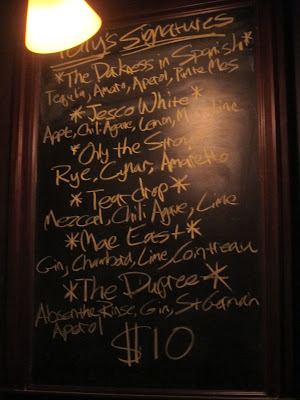 Tony's Signatures
*The Darkness in Spanish*
Tequila, Amaro, Aperol, Punt e Mes
*Jesco White*
Apple, Chili Agave, Lemon, Moonshine
*Only the Strong*
Rye, Cynar, Amaretto
*Teardrop*
Mezcal, Chili Agave, Lime
*Mae East*
Gin, Chambord, Lime, Cointreau
*The Dupree*
Absenthe Rinse, Gin, St Germain
Aperol
$10